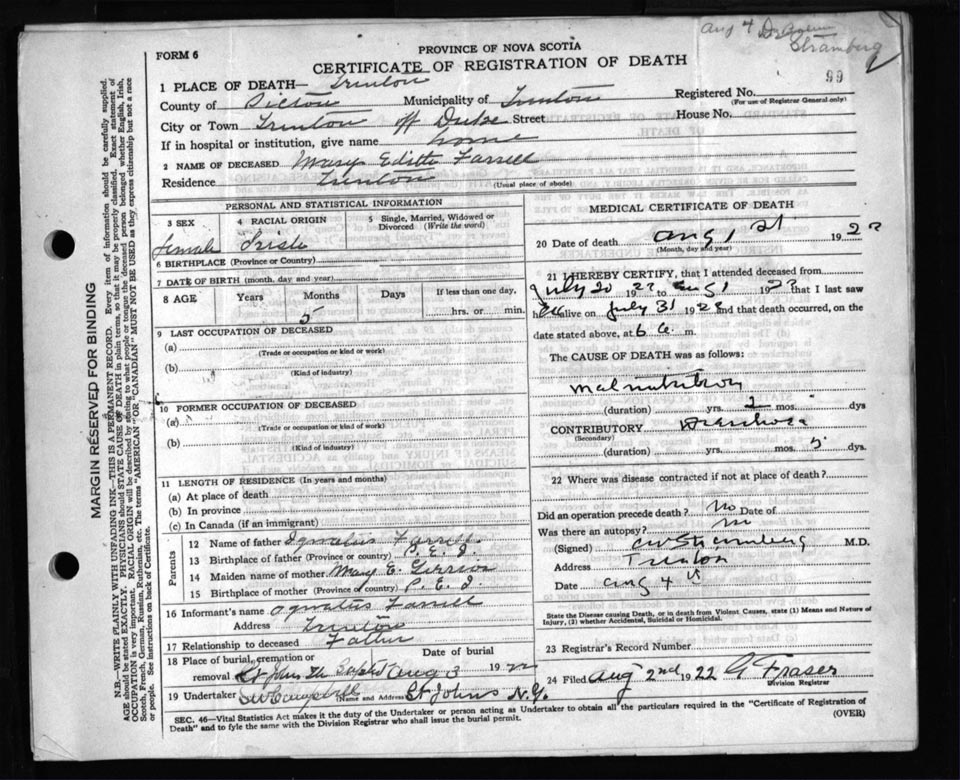 Aug 4 Dr
Stramberg
FORM 6
PROVINCE OF NOVA SCOTIA
CERTIFICATE OF REGISTRATION OF DEATH
99
1 PLACE OF DEATH— Trenton
County of Pictou Municipality of Trenton Registered No.
(For use of Registrar General only)
City or Town Trenton off Duke Street House No.
If in hospital or institution, give name home
2 NAME OF DECEASED Mary Edith Farrell
Residence Trenton (Usual place of abode)
PERSONAL AND STATISTICAL INFORMATION
3 SEX 4 RACIAL ORIGIN 5 Single, Married, Widowed or Divorced (Write the word)
Female Irish
6 BIRTHPLACE (Province or Country)
7 DATE OF BIRTH (month, day and year)
8 AGE Years Months Days If less than one day,
5 hrs. or min.
9 LAST OCCUPATION OF DECEASED
(a)
(Trade or occupation or kind or work)
(b)
(Kind of industry)
10 FORMER OCCUPATION OF DECEASED
(a)
(Trade or occupation or kind of work)
(b)
(Kind of industry)
11 LENGTH OF RESIDENCE (In years and months)
(a) At place of death
(b) In province
(c) In Canada (if an immigrant)
Parents
12 Name of father Ignatius Farrell
13 Birthplace of father (Province or country) P. E. I.
14 Maiden name of mother Mary E.
15 Birthplace of mother (Province or country) P. E. I.
16 Informant's name Ignatius Farrell
Address Trenton
17 Relationship to deceased Father
18 Place of burial, cremation or removal St Johns The Baptist Date of burial Aug 3 1922
19 Undertaker Campbell Name and Address St Johns N.G.
MEDICAL CERTIFICATE OF DEATH
20 Date of death Aug 1st 1922
(Month, day and year)
21 I HEREBY CERTIFY, that I attended deceased from
July 20 1922 to Aug 1 1922 that I last saw
her alive on July 31 1922 and that death occurred, on the
date stated above, at 6 a. m.
The CAUSE OF DEATH was as follows:
Malnutrition
(duration) yrs. 2 mos. dys
CONTRIBUTORY Diarrhoea
(Secondary)
(duration) yrs. mos. 5 dys.
22 Where was disease contracted if not at place of death?
Did an operation precede death? No Date of
Was there an autopsy? no
(Signed) Stramberg M.D.
Address Trenton
Date Aug 4
State the Disease causing Death, or in death from Violent Causes, state (1) Means and Nature of
Injury, (2) whether Accidental, Suicidal or Homicidal.
23 Registrar's Record Number
24 Filed Aug 2nd 1922 G Fraser
Division Registrar
SEC. 46—Vital Statistics Act makes it the duty of the Undertaker or person acting as Undertaker to obtain all the particulars required in the "Certificate of Registration of
Death" and to fyle the same with the Division Registrar who shall issue the burial permit.
(OVER)
MARGIN RESERVED FOR BINDING
N.B.—WRITE PLAINLY WITH UNFADING INK—THIS IS A PERMANENT RECORD. Every item of information should be carefully supplied.
AGE should be stated EXACTLY. PHYSICIANS should STATE CAUSE OF DEATH in plain terms, so that it may be properly classified. Exact statement of
OCCUPATION is very important. RACIAL ORIGIN will be described by stating to what people or tongue the deceased person belonged whether English, Irish,
Scotch, French, German, Russian, Ruthenian, etc. The terms "AMERICAN" OR "CANADIAN" MUST NOT BE USED as they express citizenship but not a race
or people. See instructions on back of Certificate.